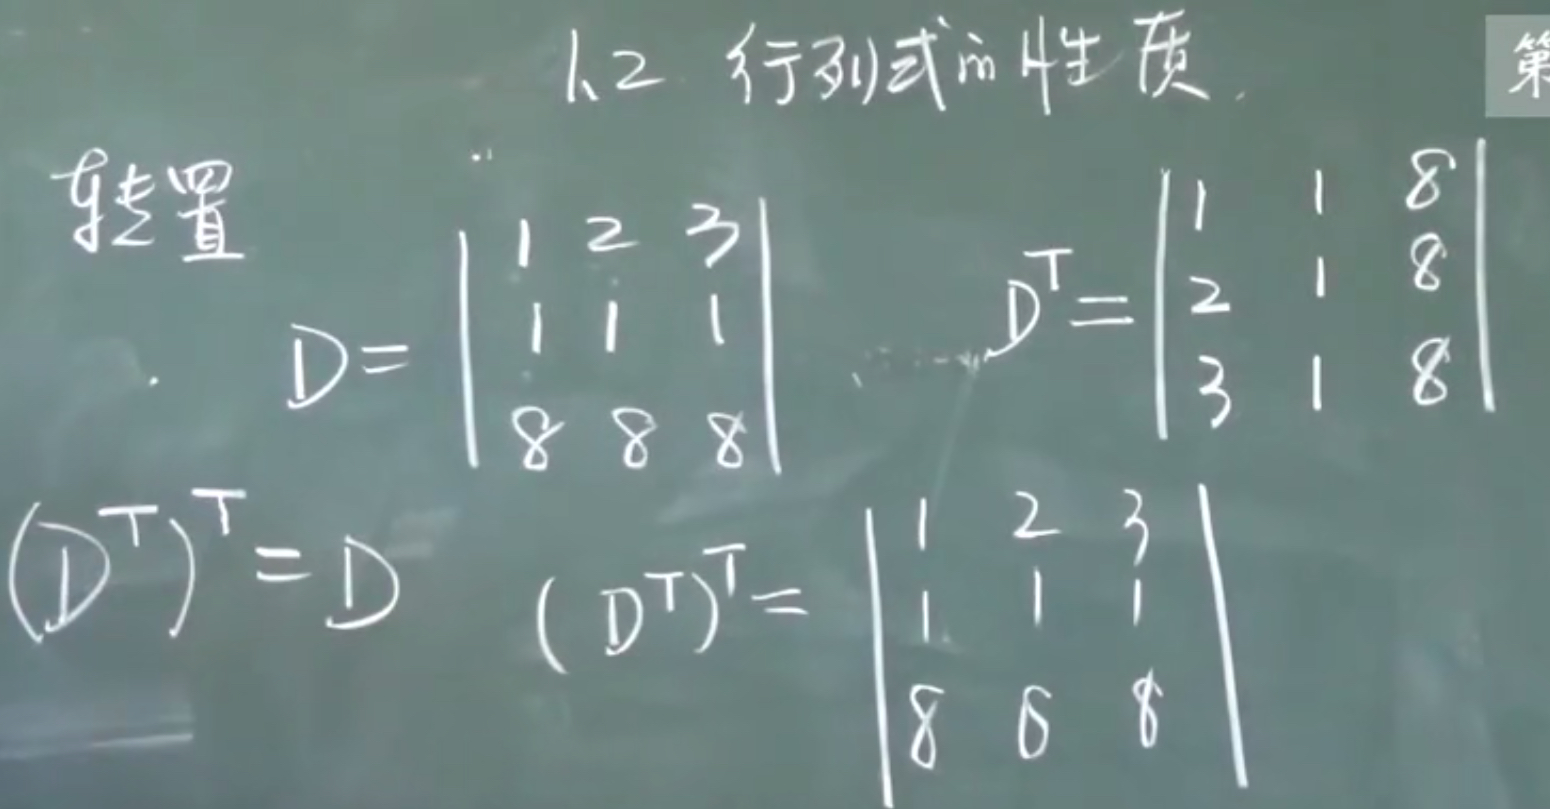 1.2 行列式的性质.
第
转置
D = | 1 2 3 |
| 1 1 1 |
| 8 8 8 |
D^T = | 1 1 8 |
| 2 1 8 |
| 3 1 8 |
(D^T)^T = D
(D^T)^T = | 1 2 3 |
| 1 1 1 |
| 8 8 8 |